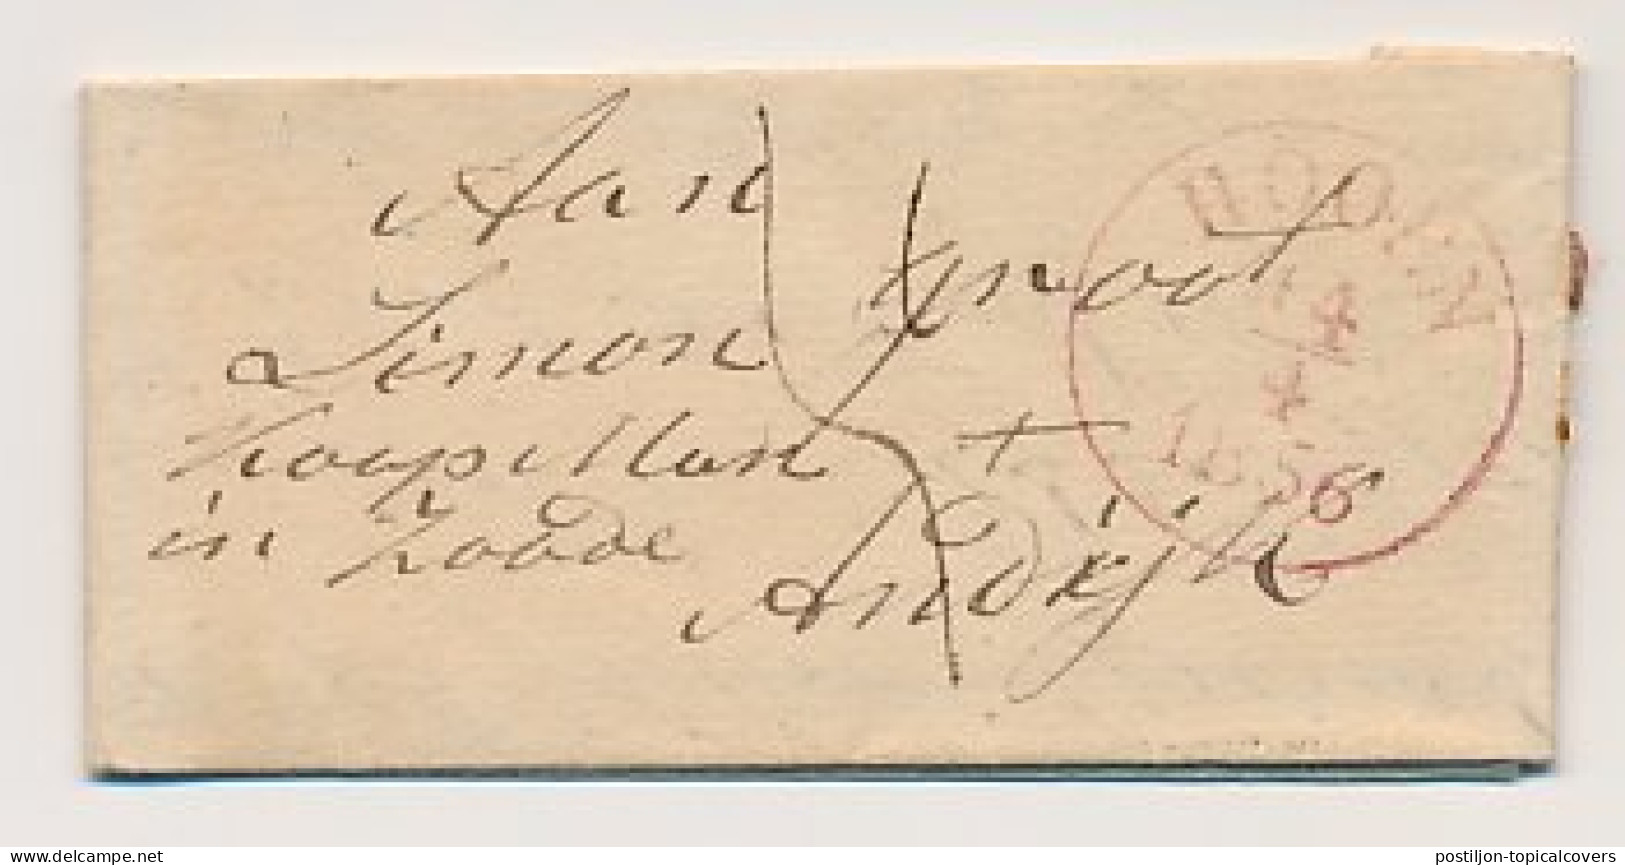 Aan
Simon Groot
Koopman +
in Zaade
Andijk
HOORN
4
4
1856
www.delcampe.net
postiljon-topicalcovers